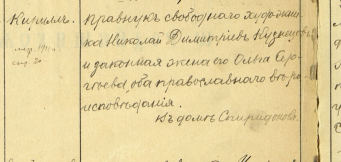 Кириллъ.
правнукъ свободнаго художни-
ка Николай Димитріевъ Кузнецовъ
и законная жена его Ольга Геор-
гіева, оба православнаго вѣро-
исповѣданія.
Въ домѣ Спиридонова.